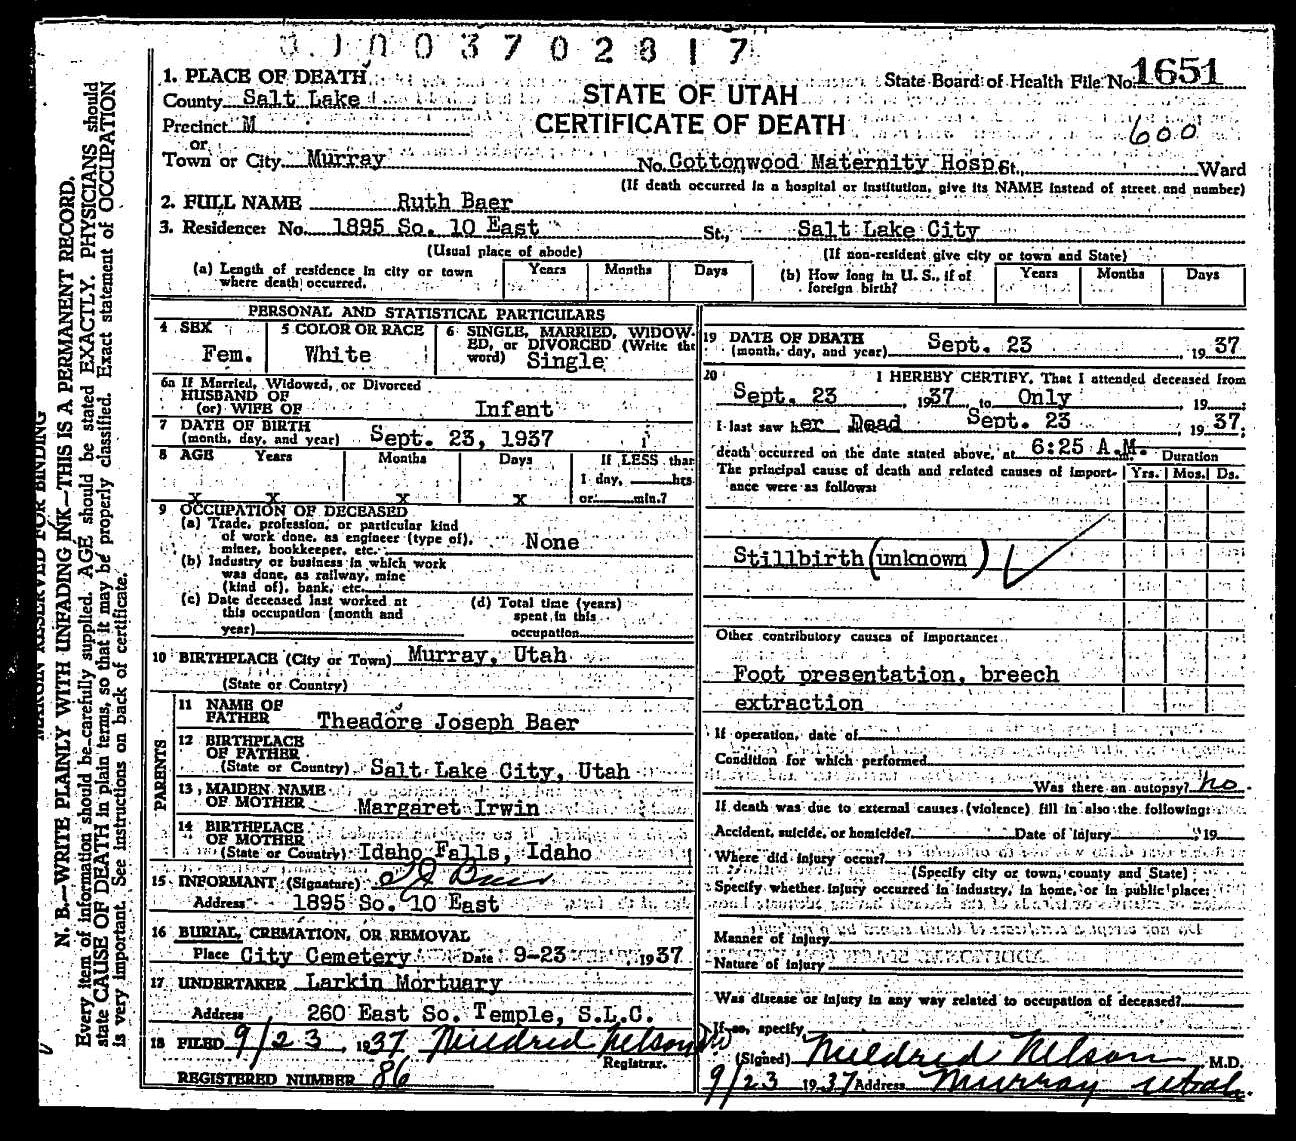 0100370281 7
1. PLACE OF DEATH
State Board of Health File No. 1651
County Salt Lake
STATE OF UTAH
Precinct M
CERTIFICATE OF DEATH
600
or
Town or City Murray No. Cottonwood Maternity Hosp. St., Ward
(If death occurred in a hospital or institution, give its NAME instead of street and number)
2. FULL NAME Ruth Baer
3. Residence: No. 1895 So. 10 East St., Salt Lake City
(Usual place of abode) (If non-resident give city or town and State)
(a) Length of residence in city or town where death occurred. Years Months Days
(b) How long in U. S., if of foreign birth? Years Months Days
PERSONAL AND STATISTICAL PARTICULARS
4 SEX Fem.
5 COLOR OR RACE White
6 SINGLE, MARRIED, WIDOW-
ED, or DIVORCED (Write the
word) Single
6a If Married, Widowed, or Divorced
HUSBAND OF
(or) WIFE OF Infant
7 DATE OF BIRTH
(month, day, and year) Sept. 23, 1937
8 AGE Years Months Days If LESS than
1 day, hrs.
x x x x or min.?
9 OCCUPATION OF DECEASED
(a) Trade, profession, or particular kind
of work done, as engineer (type of),
miner, bookkeeper, etc. None
(b) Industry or business in which work
was done, as railway, mine
(kind of), bank, etc.
(c) Date deceased last worked at
this occupation (month and
year)
(d) Total time (years)
spent in this
occupation
10 BIRTHPLACE (City or Town) Murray, Utah
(State or Country)
PARENTS
11 NAME OF
FATHER Theadore Joseph Baer
12 BIRTHPLACE
OF FATHER
(State or Country) Salt Lake City, Utah
13 MAIDEN NAME
OF MOTHER Margaret Irwin
14 BIRTHPLACE
OF MOTHER
(State or Country) Idaho Falls, Idaho
15 INFORMANT (Signature) T J Baer
Address 1895 So. 10 East
16 BURIAL, CREMATION, OR REMOVAL
Place City Cemetery Date 9-23 1937
17 UNDERTAKER Larkin Mortuary
Address 260 East So. Temple, S.L.C.
18 FILED 9/23, 1937 Mildred Nelson
Registrar.
REGISTERED NUMBER 86
19 DATE OF DEATH
(month, day, and year) Sept. 23, 1937
20 I HEREBY CERTIFY, That I attended deceased from
Sept. 23, 1937 to Only, 19
I last saw her Dead Sept. 23, 1937;
death occurred on the date stated above, at 6:25 A.M.
Duration
The principal cause of death and related causes of import-
ance were as follows: Yrs. Mos. Ds.
Stillbirth (unknown)
Other contributory causes of importance:
Foot presentation, breech
extraction
If operation, date of
Condition for which performed
Was there an autopsy? no
If death was due to external causes (violence) fill in also the following:
Accident, suicide, or homicide? Date of injury 19
Where did injury occur?
(Specify city or town, county and State)
Specify whether injury occurred in industry, in home, or in public place:
Manner of injury
Nature of injury
Was disease or injury in any way related to occupation of deceased?
If so, specify
(Signed) Mildred Nelson M.D.
9/23 1937 Address Murray Utah.
MARGIN RESERVED FOR BINDING
N. B.—WRITE PLAINLY WITH UNFADING INK—THIS IS A PERMANENT RECORD.
Every item of information should be carefully supplied. AGE should be stated EXACTLY. PHYSICIANS should
state CAUSE OF DEATH in plain terms, so that it may be properly classified. Exact statement of OCCUPATION
is very important. See instructions on back of certificate.